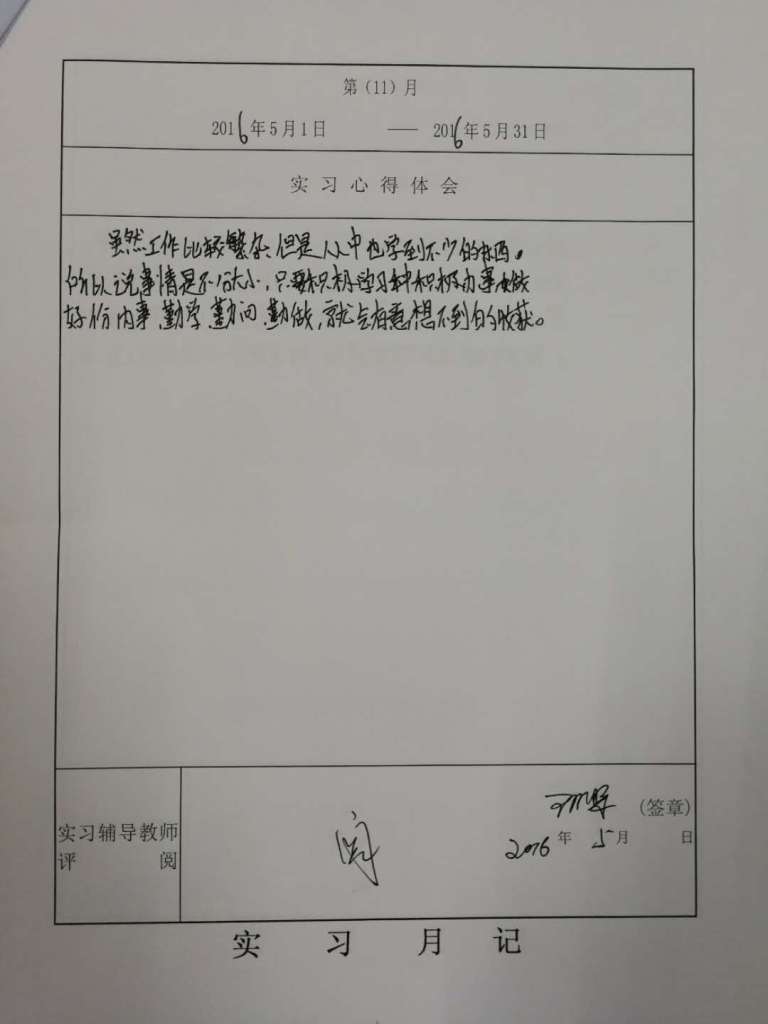 第（11）月
2016年5月1日 —— 2016年5月31日
实习心得体会
虽然工作比较繁杂 但是从中也学到不少的东西。
所以说事情是不分大小，只要积极学习 积极办事 做
好份内事 勤学 勤问 勤做，就会有意想不到的收获。
实习辅导教师
评阅
阅
（签章）
2016年5月 日
实习月记